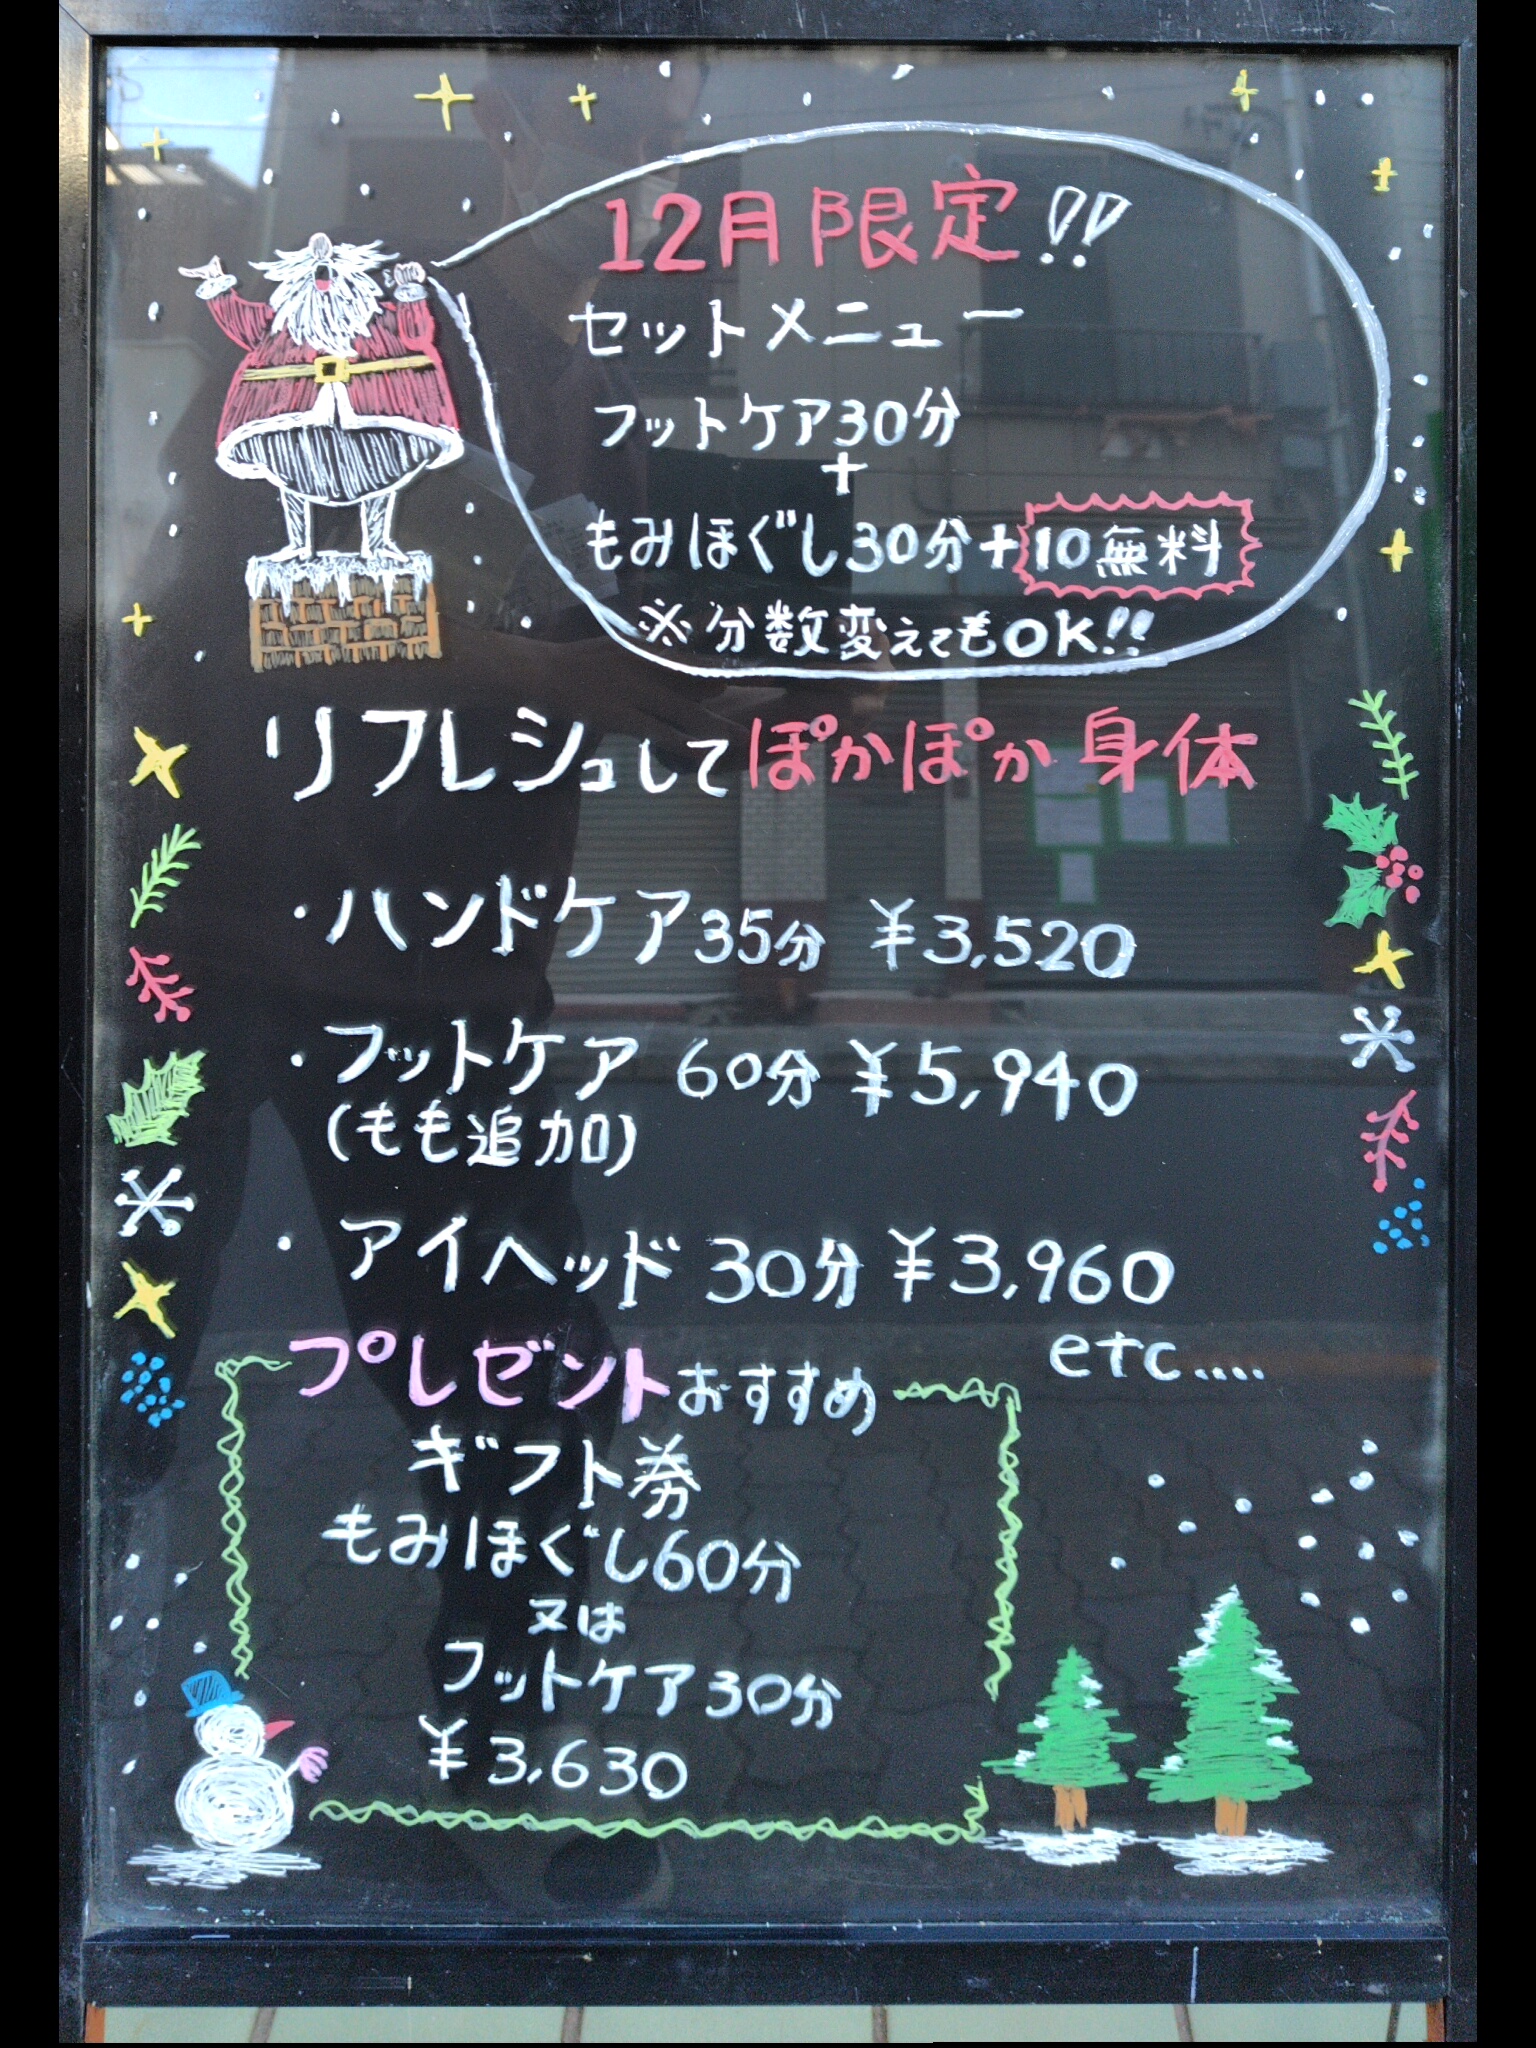 12月限定!!
セットメニュー
フットケア30分
+
もみほぐし30分+10無料
※分数変えてもOK!!
リフレシュしてぽかぽか身体
・ハンドケア35分 ¥3,520
・フットケア 60分 ¥5,940
(もも追加)
・アイヘッド 30分 ¥3,960
etc....
プレゼントおすすめ
ギフト券
もみほぐし60分
又は
フットケア30分
¥3,630